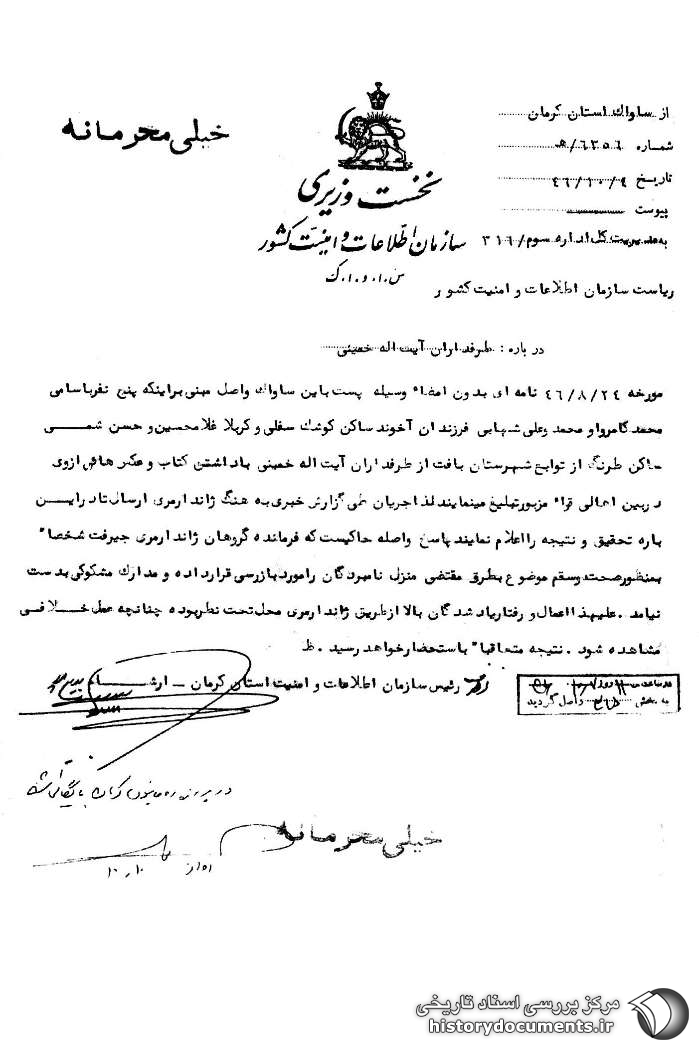 خیلی محرمانه
از ساواك استان كرمان
شماره ۶۳۵۶/ ه
تاریخ ۴۶/۱۰/۴
پیوست
به مدیریت كل اداره سوم/ ۳۱۶
نخست وزیری
سازمان اطلاعات و امنیت كشور
س.ا.و.ا.ك
ریاست سازمان اطلاعات و امنیت كشور
درباره : طرفداران آیت اله خمینی
مورخه ۴۶/۸/۲۴ نامه ای بدون امضاء وسیله پست باین ساواك واصل مبنی براینكه پنج نفرباسامی
محمد كامروا و محمد وعلی شهابی فرزندان آخوند ساكن كوشك سفلی و كربلا غلامحسین و حسن شمسی
ساكن طرنگ از توابع شهرستان بافت از طرفداران آیت اله خمینی باداشتن كتاب و عكس هائی ازوی
دربین اهالی قراء مزبورتبلیغ مینمایند لذا جریان طی گزارش خبری به هنگ ژاندارمری ارسال تا دراین
باره تحقیق و نتیجه را اعلام نمایند پاسخ واصله حاكیست كه فرمانده گروهان ژاندارمری جیرفت شخصا"
بمنظورصحت وسقم موضوع بطرق مقتضی منزل نامبردگان رامورد بازرسی قرارداده و مدارك مشكوكی بدست
نیامد .علیهذا اعمال و رفتاریاد شدگان بالا ازطریق ژاندارمری محل تحت نظربوده چنانچه عمل خلافی
مشاهده شود .نتیجه متعاقبا" باستحضارخواهد رسید .ظ
رئیس سازمان اطلاعات و امنیت استان كرمان –
به بخش واصل گردید
خیلی محرمانه
۱۰ر۱۰
مرکز بررسی اسناد تاریخی
historydocuments.ir